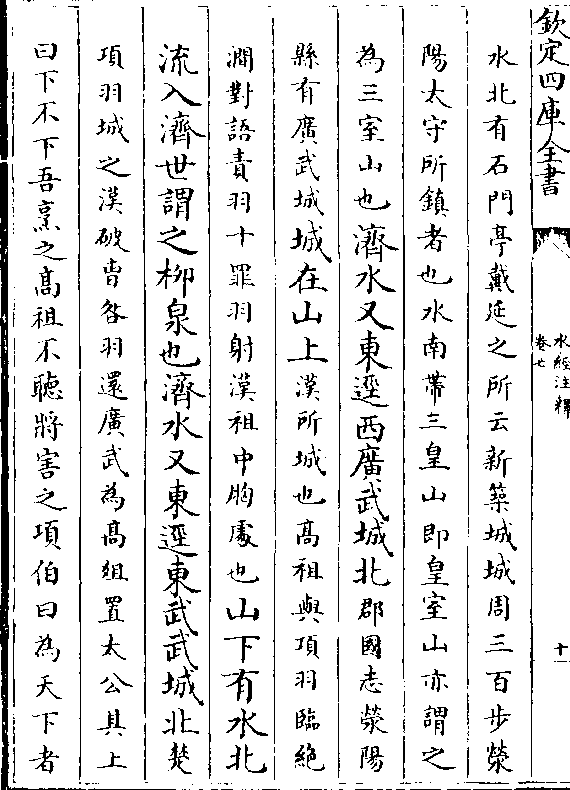 欽定四庫全書
水經注釋
卷七
十一
水北有石門亭戴延之所云新築城城周三百步滎
陽太守所鎮者也水南帶三皇山即皇室山亦謂之
為三室山也濟水又東逕西廣武城北郡國志滎陽
縣有廣武城城在山上漢所城也高祖與項羽臨絶
澗對語責羽十罪羽射漢祖中胸處也山下有水北
流入濟世謂之柳泉也濟水又東逕東武武城北楚
項羽城之漢破曺咎羽還廣武為高俎置太公其上
曰下不下吾烹之高祖不聽將害之項伯曰為天下者